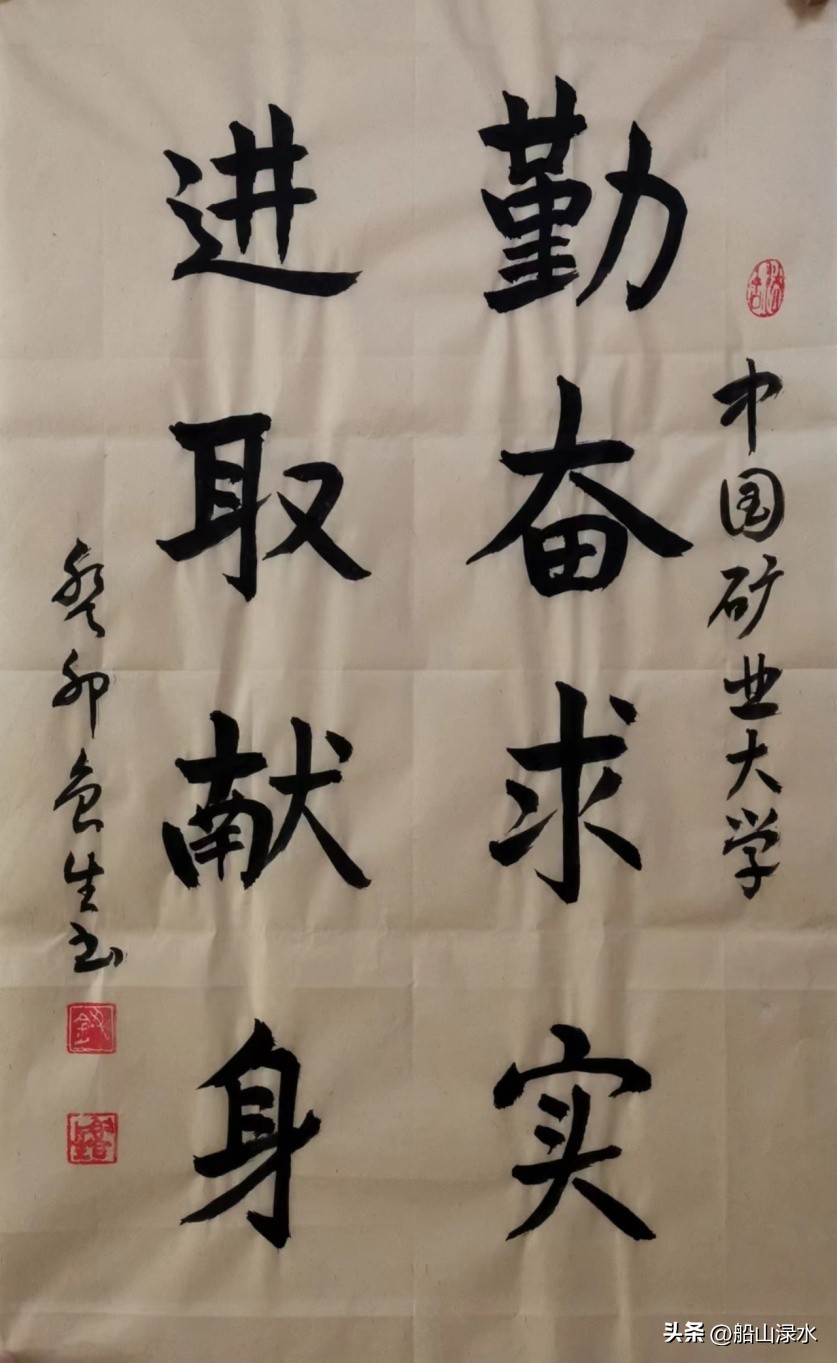 中国矿业大学
勤奋求实
进取献身
癸卯鱼生书
头条 @船山渌水